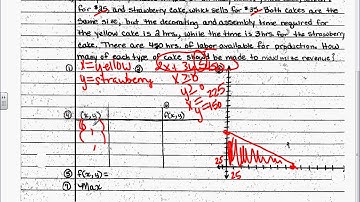 for $25, and strawberry cake, which sells for $35. Both cakes are the
same size, but the decorating and assembly time required for
the yellow cake is 2 hrs, while the time is 3 hrs for the strawberry
cake. There are 450 hrs of labor available for production. How
many of each type of cake should be made to maximize revenue?
① x = yellow
② 2x + 3y ≤ 450
③
y = strawberry
x ≥ 0
y ≥ 0
x = 225
y = 150
④ (x, y)
f(x,y)
25
⑤ f(x,y) =
⑦ Max